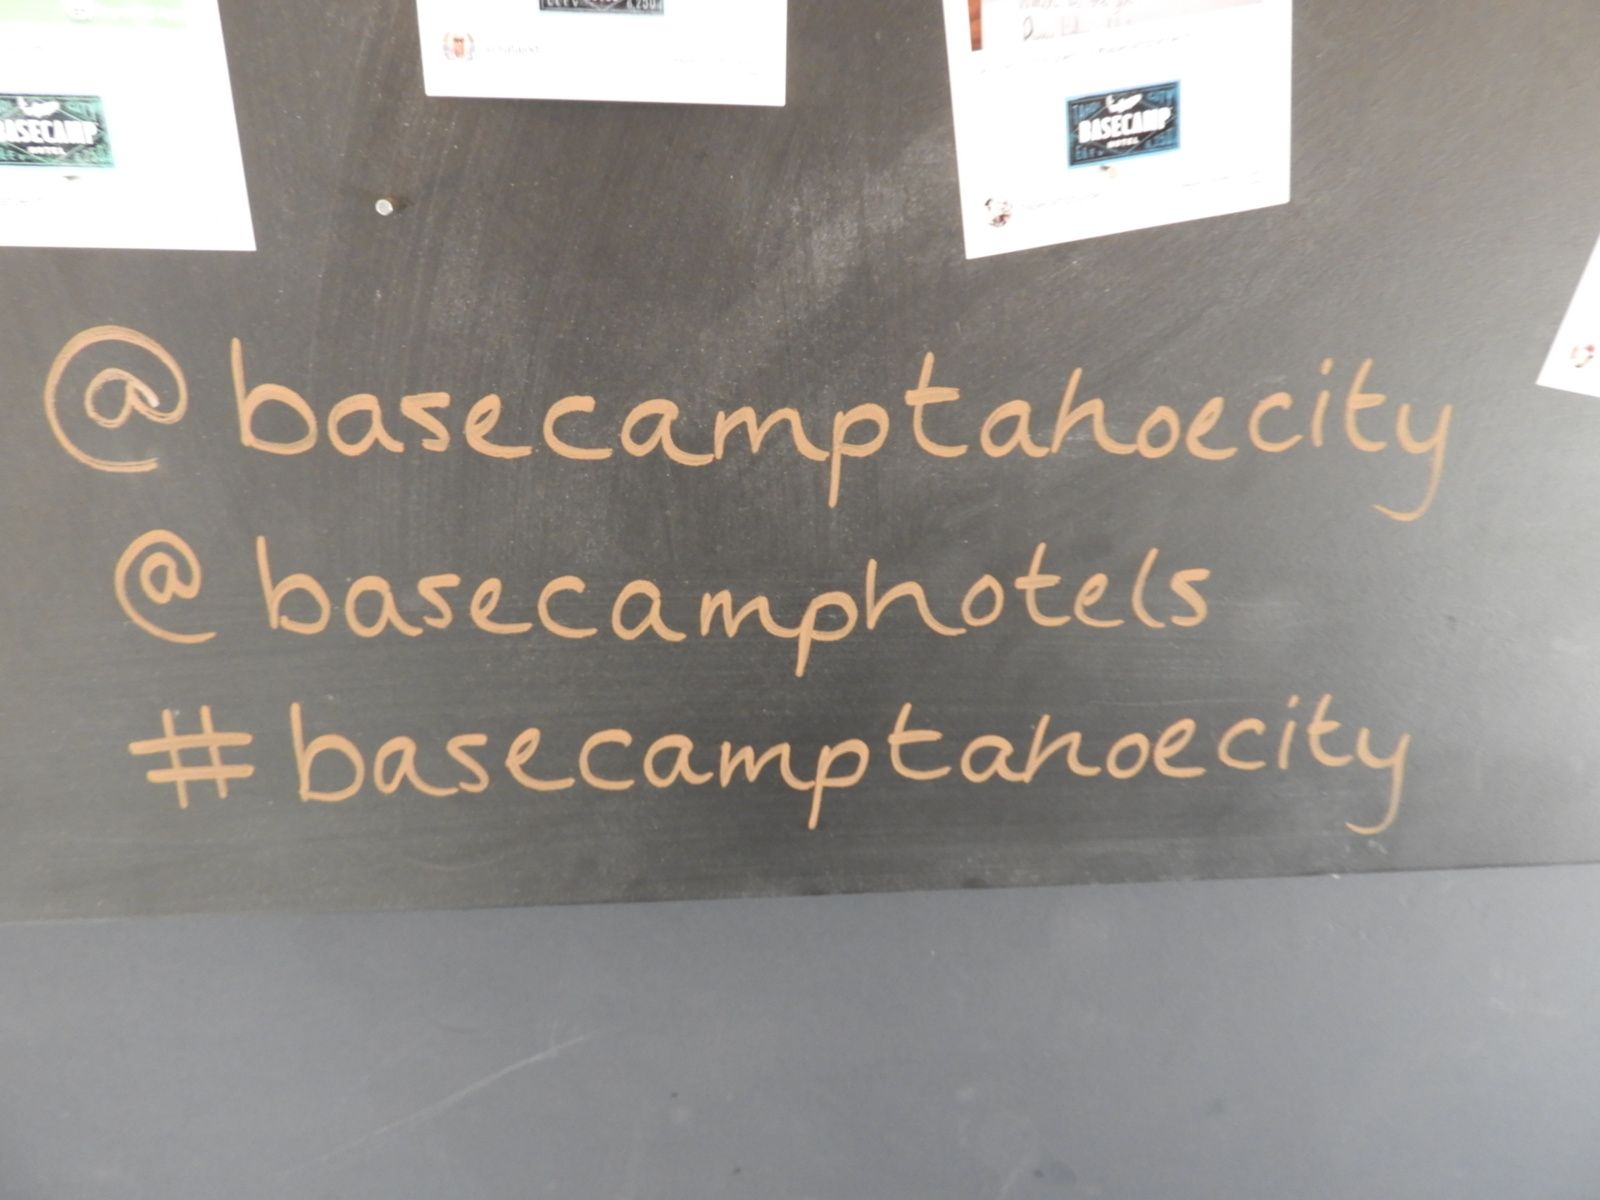 BASECAMP
HOTEL
BASECAMP
HOTEL
@basecamptahoecity
@basecamphotels
#basecamptahoecity